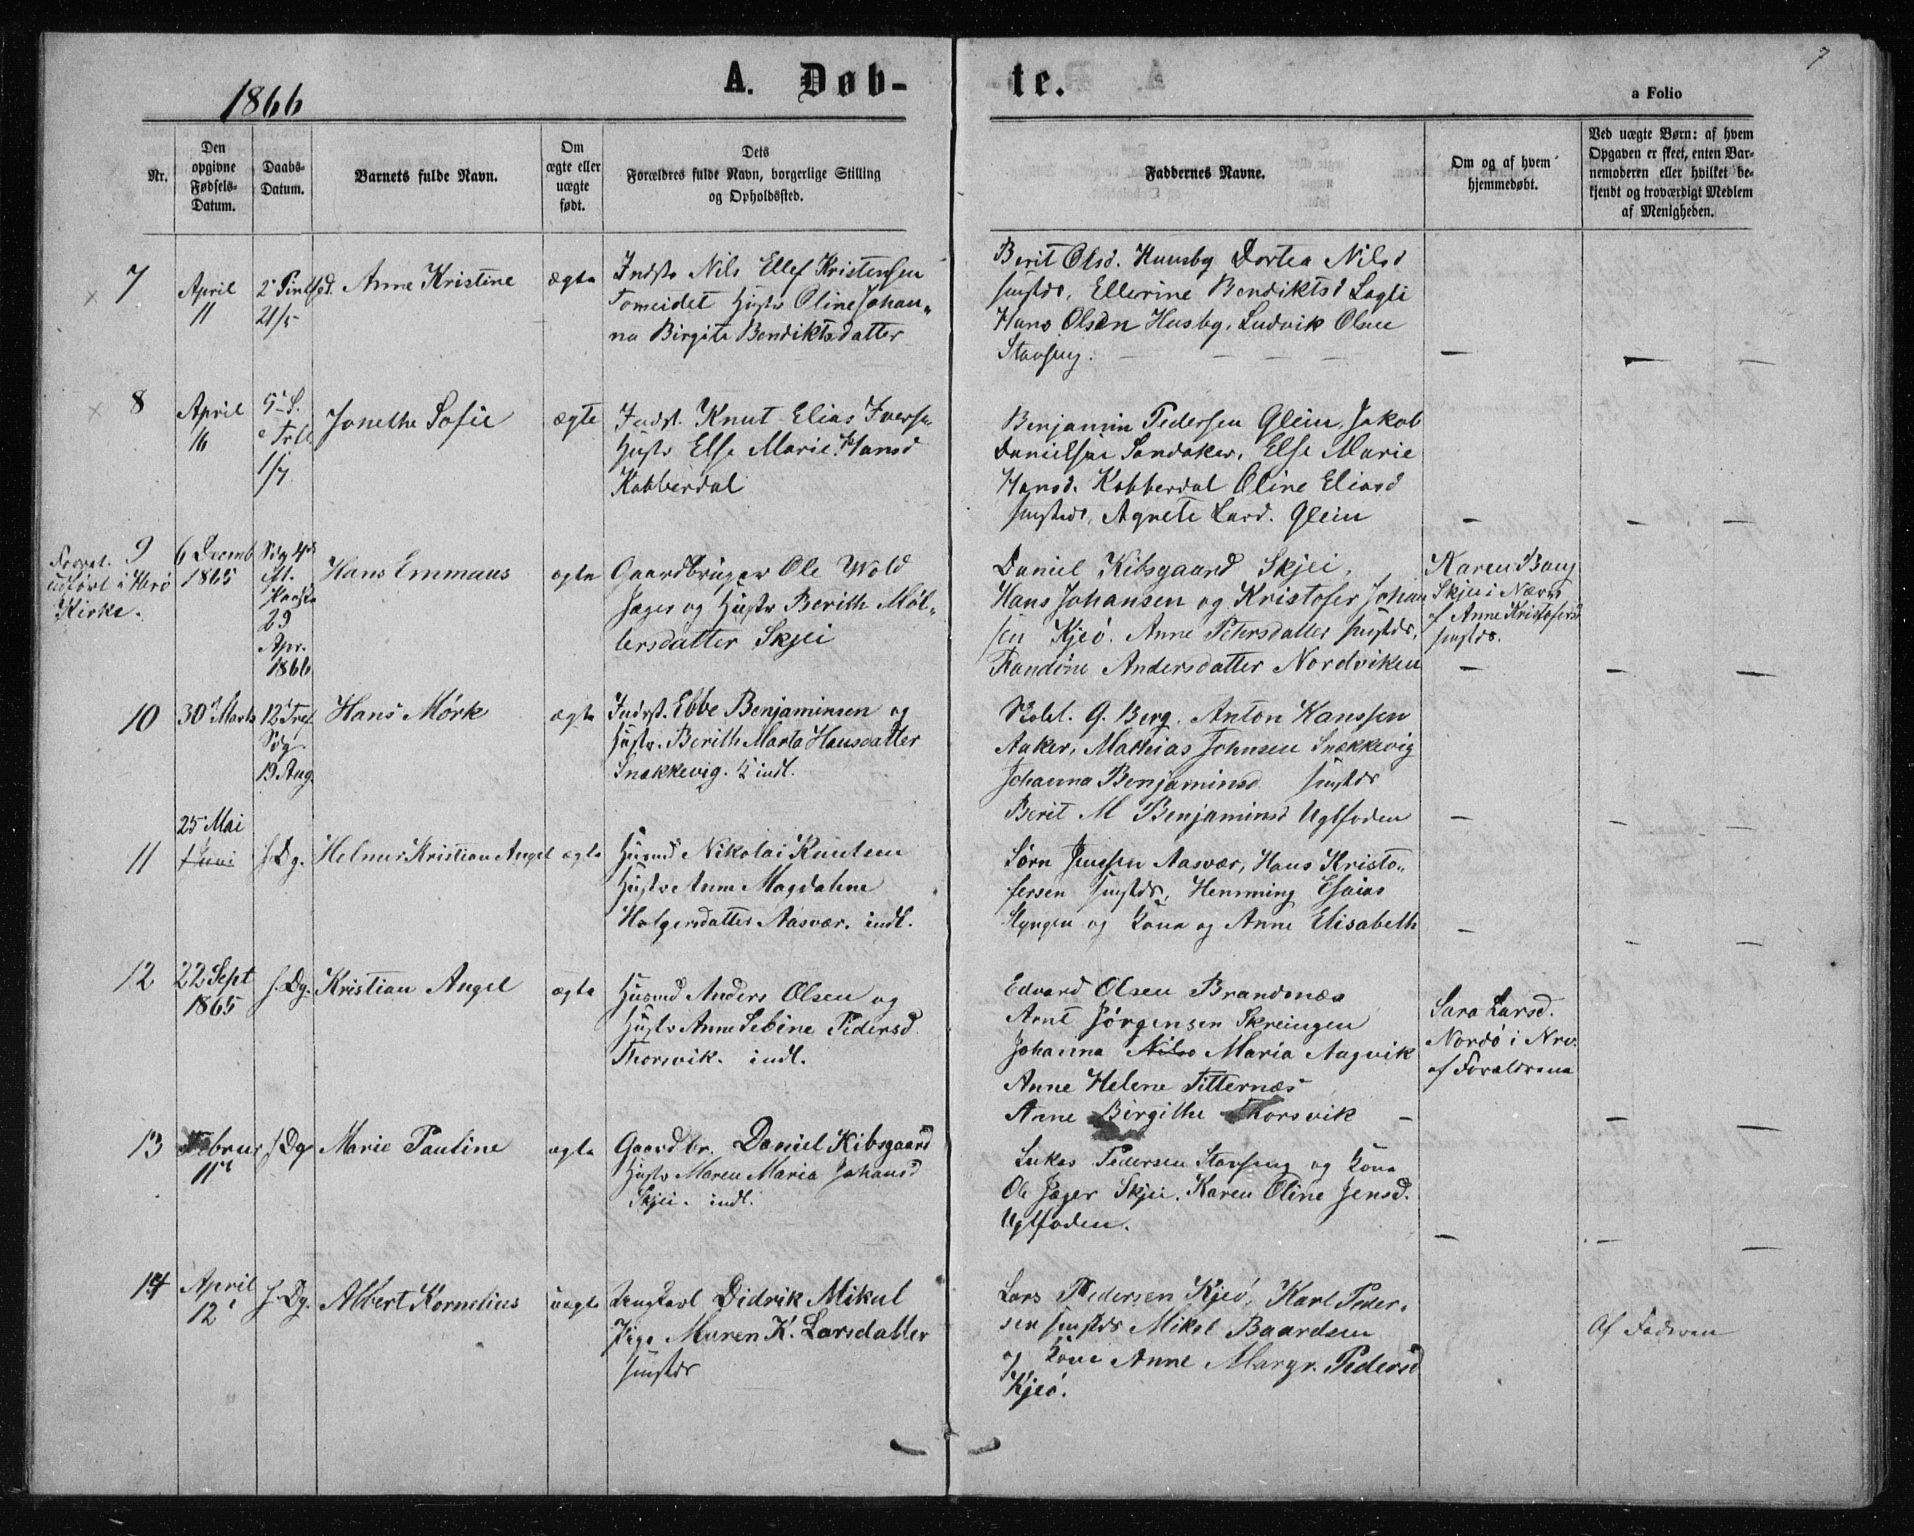 1866
A. Døb-
te.
7
a Folio
Nr.
Den
opgivne
Fødsels-
Datum.
Daabs-
Datum.
Barnets fulde Navn.
Om
ægte eller
uægte
født.
Dets
Forældres fulde Navn, borgerlige Stilling
og Opholdssted.
Faddernes Navne.
Om og af hvem
hjemmedøbt.
Ved uægte Børn: af hvem
Opgaven er skeet, enten Bar-
nemoderen eller hvilket be-
kjendt og troværdigt Medlem
af Menigheden.
7
April
11
21/5
Anne Kristine
ægte
Indst. Nils Ellef Kristensen
Tomeidet Hustr Oline Johan-
na Birgite Bendiktsdatter
Berit Olsd. Huusby Dortea Nilsd
smstds, Ellerine Bendiktsd
Hans Olsen Husby, Ludvik Olsen
Stavseng.
8
April
16
5. S.
e Tref
1/7
Jonethe Sofie
ægte
Indst. Knut Elias Iversen
Hustr Else Marie Hansd
Kobberdal
Benjamin Pedersen Glein, Jakob
Danielsen Sandaker, Else Marie
Hansd. Kobberdal Oline Eliasd
smstds, Agnete Larsd. Glein
9
udført i Herø
Kirke.
6 Decemb
1865
29
Apr.
1866
Hans Emmaus
ægte
Gaardbruger Ole Wold
Jæger og Hustr Berith Møl-
lersdatter Skjei
Daniel Kibsgaard Skjei,
Hans Johansen og Kristofer Johan
sen Kjeø. Anne Petersdatter smstds,
Randine Andersdatter Nordviken
Karen Bang
Skjei i Næro
af Anne Kristofersd
smstds.
10
30' Marts
12' Tref
Sdg
19 Aug
Hans Mørk
ægte
Indrst. Ebbe Benjaminsen og
Hustr. Berith Marta Hansdatter
Snækkevig. indl.
G. Berg. Anton Hanssen
Aaker, Mathias Johnsen Snækkevig
Johanna Benjaminsd smstds
Berit M Benjaminsd Ugtfoden
11
25' Mai
Juni
s. Dg.
Helmer Kristian Angel
ægte
Husmd Nikolai Knutsen
Hustr Anne Magdalene
Holgersdatter Aasvær. indl.
Sørn Jenssen Aasvær, Hans Kristo-
fersen smstds, Hemming Esaias
Slyngen og Kona og Anne Elisabeth
12
22 Sept
1865
s. Dg.
Kristian Angel
ægte
Husmd Anders Olsen og
Hustr Anne Sebine Pedersd
Thorsvik. indl.
Edvard Olsen Brandsnæs
Arnt Jørgensen Skreingen
Johanna Nilss Maria Aagvik
Anne Helene Titternæs
Anne Birgithe Thorsvik
Sara Larsd.
Nordø i Nro.
af Forældrene
13
Februar
11'
s. Dg
Marie Pauline
ægte
Gaardbr. Daniel Kibsgaard
Hustr Maren Maria Johansd
Skjei. indl.
Lukas Pedersen Stavseng og Kona
Ole Jæger Skjei. Karen Oline Jensd.
Ugtfoden.
14
April
12'
s. Dg.
Albert Kornelius
uægte
Ungkarl Didrik Mikal
Pige Maren K. Larsdatter
smstds
Lars Pedersen Kjeø, Karl Peder-
sen smstds Mikal Baardsen
og Kone Anne Margr. Pedersd
Kjeø.
Af Faderen